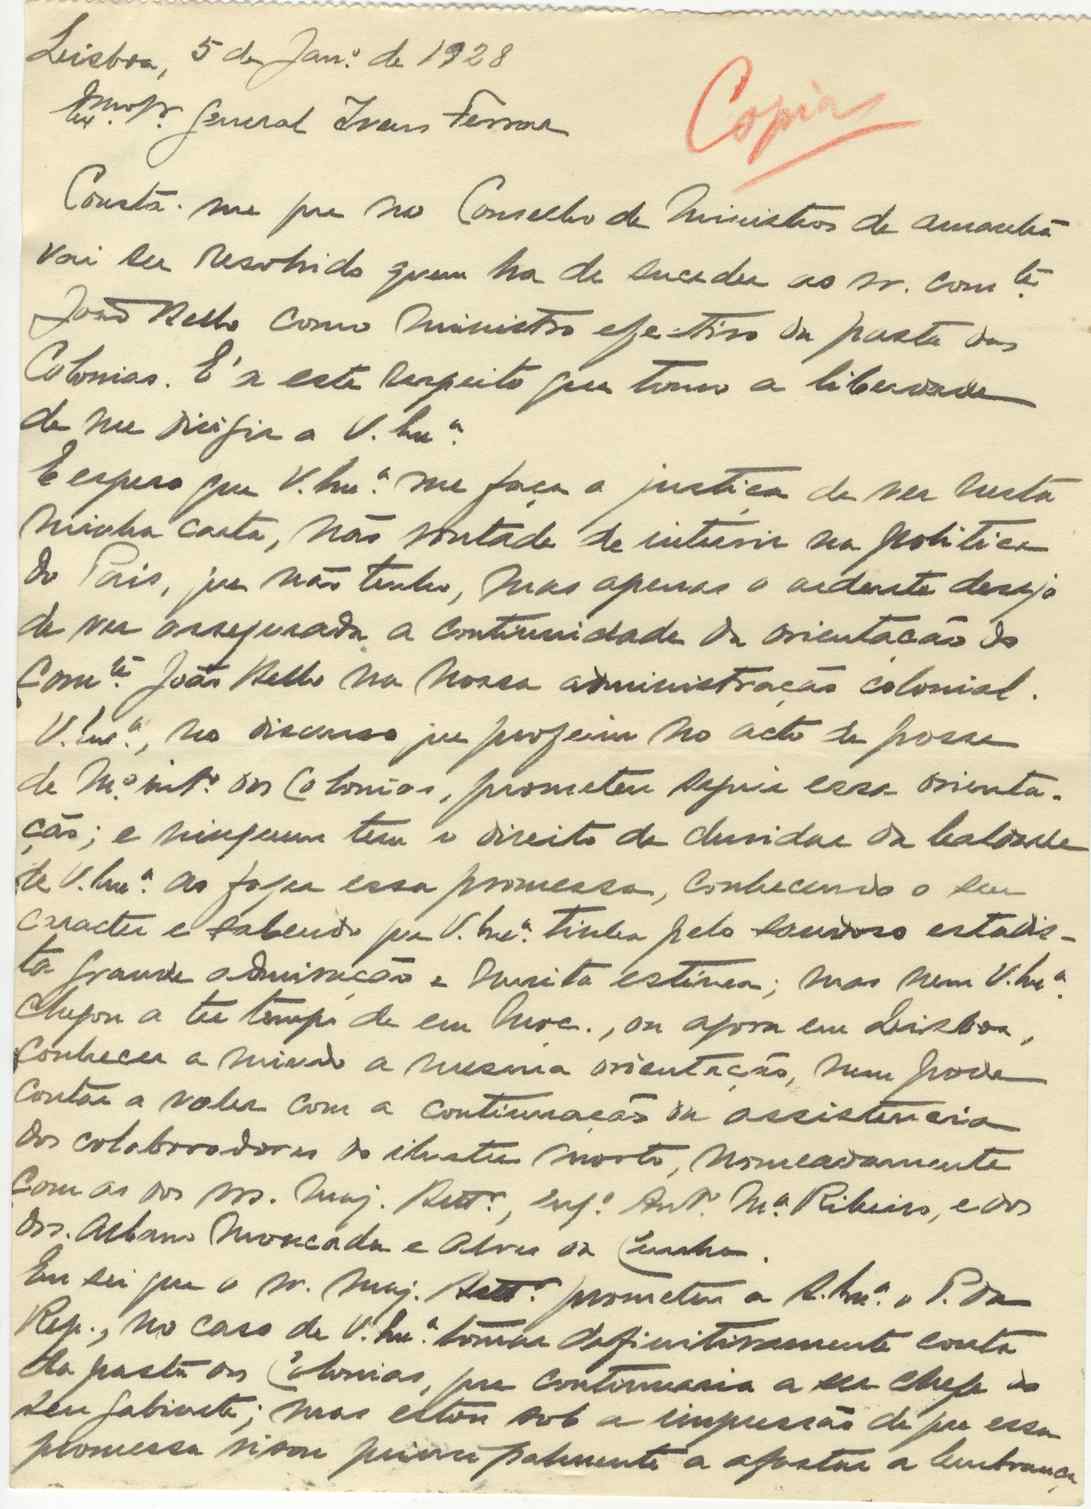 Lisboa, 5 de Jan.º de 1928
Copia
Exmo. Sr. General Ivens Ferraz
Consta-me que no Conselho de Ministros de amanhã
vai ser resolvido quem ha de suceder ao sr. com.te
João Bello como Ministro efectivo da pasta das
Colonias. E' a este respeito que tomo a liberdade
de me dirigir a V. Ex.ª
E espero que V. Ex.ª me faça a justiça de ver nesta
minha carta, não vontade de intervir na politica
do Pais, que não tenho, mas apenas o ardente desejo
de ver assegurada a continuidade da orientação do
Com.te João Bello na nossa administração colonial.
V. Ex.ª, no discurso que proferiu no acto de posse
de M.º int.º das Colonias, prometeu seguir essa orienta-
ção; e ninguem tem o direito de duvidar da lealdade
de V. Ex.ª ao fazer essa promessa, conhecendo o seu
caracter e sabendo que V. Ex.ª tinha pelo saudoso estadis-
ta grande admiração e muita estima; mas nem V. Ex.ª
chegou a ter tempo de em Moc., ou agora em Lisboa,
conhecer a miudo a mesma orientação, nem pode
contar a valer com a continuação da assistencia
dos colaboradores do ilustre morto, nomeadamente
com as dos srs. maj. Bett.º, eng.º Ant.º M.ª Ribeiro, e dos
drs. Albano Moncada e Alves da Cunha.
Eu sei que o sr. maj. Bett.º prometeu a S. Ex.ª o P. da
Rep., no caso de V. Ex.ª tomar definitivamente conta
da pasta das Colonias, que continuaria a ser chefe do
seu gabinete; mas estou sob a impressão de que essa
promessa visou principalmente a afastar a lembrança